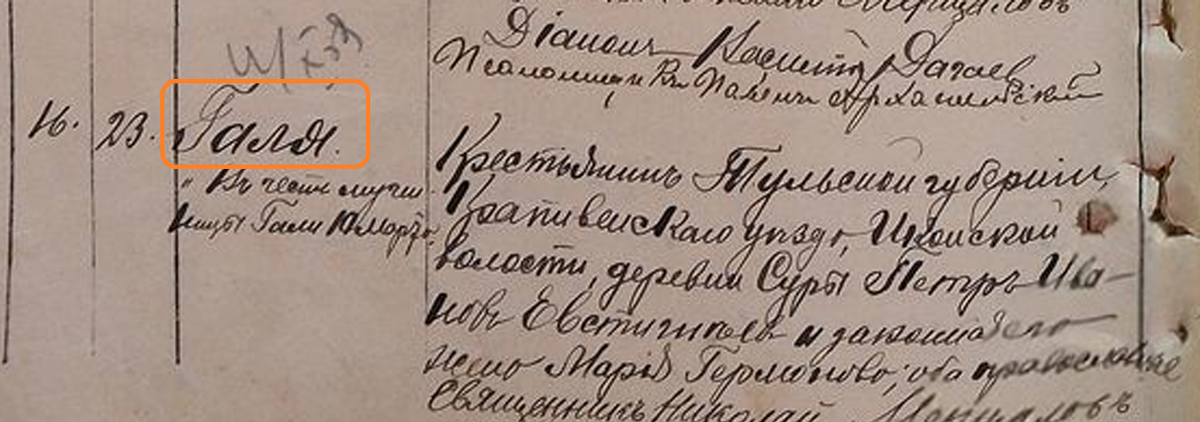 Діаконъ Василій Дагаев
Псаломщикъ Архангельскій
16. 23. Галя.
" Въ честь мучен
ицы Гали 10 Марта.
Крестьянинъ Тульской губерніи,
Крапивенскаго уѣзда,
волости, деревни Суры Петръ Ива-
новъ Евстигнѣевъ и законная его
жена Марія Германова; оба православные
Священникъ Николай